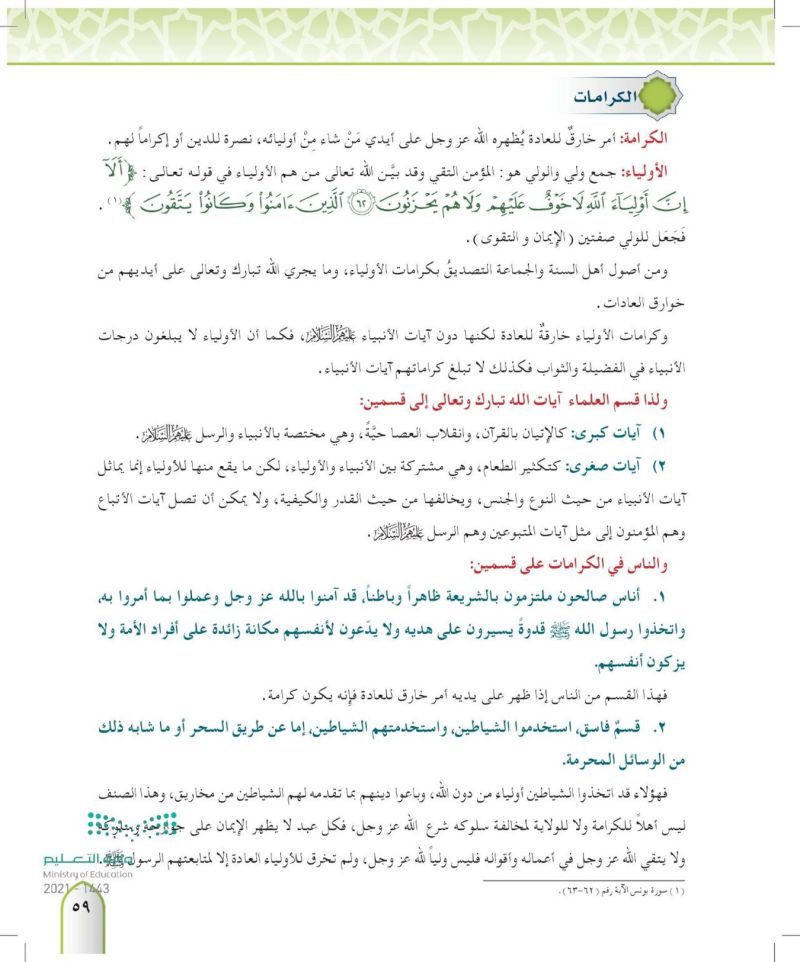 الكرامات
الكرامة: أمر خارقٌ للعادة يُظهره الله عز وجل على أيدي مَنْ شاء مِنْ أوليائه، نصرة للدين أو إكراماً لهم.
الأولياء: جمع ولي والولي هو: المؤمن التقي وقد بيَّن الله تعالى من هم الأولياء في قوله تعالى: ﴿أَلَآ
إِنَّ أَوْلِيَآءَ ٱللَّهِ لَا خَوْفٌ عَلَيْهِمْ وَلَا هُمْ يَحْزَنُونَ ۝٦٢ ٱلَّذِينَ ءَامَنُوا۟ وَكَانُوا۟ يَتَّقُونَ﴾(١).
فَجَعَل للولي صفتين (الإيمان و التقوى).
ومن أصول أهل السنة والجماعة التصديقُ بكرامات الأولياء، وما يجري الله تبارك وتعالى على أيديهم من
خوارق العادات.
وكرامات الأولياء خارقةٌ للعادة لكنها دون آيات الأنبياء عليهم السلام، فكما أن الأولياء لا يبلغون درجات
الأنبياء في الفضيلة والثواب فكذلك لا تبلغ كراماتهم آيات الأنبياء.
ولذا قسم العلماء آيات الله تبارك وتعالى إلى قسمين:
١) آيات كبرى: كالإتيان بالقرآن، وانقلاب العصا حيَّةً، وهي مختصة بالأنبياء والرسل عليهم السلام.
٢) آيات صغرى: كتكثير الطعام، وهي مشتركة بين الأنبياء والأولياء، لكن ما يقع منها للأولياء إنما يماثل
آيات الأنبياء من حيث النوع والجنس، ويخالفها من حيث القدر والكيفية، ولا يمكن أن تصل آيات الأتباع
وهم المؤمنون إلى مثل آيات المتبوعين وهم الرسل عليهم السلام.
والناس في الكرامات على قسمين:
١. أناس صالحون ملتزمون بالشريعة ظاهراً وباطناً، قد آمنوا بالله عز وجل وعملوا بما أمروا به،
واتخذوا رسول الله ﷺ قدوةً يسيرون على هديه ولا يدّعون لأنفسهم مكانة زائدة على أفراد الأمة ولا
يزكون أنفسهم.
فهذا القسم من الناس إذا ظهر على يديه أمر خارق للعادة فإنه يكون كرامة.
٢. قسمٌ فاسق، استخدموا الشياطين، واستخدمتهم الشياطين، إما عن طريق السحر أو ما شابه ذلك
من الوسائل المحرمة.
فهؤلاء قد اتخذوا الشياطين أولياء من دون الله، وباعوا دينهم بما تقدمه لهم الشياطين من مخاريق، وهذا الصنف
ليس أهلاً للكرامة ولا للولاية لمخالفة سلوكه شرع الله عز وجل، فكل عبد لا يظهر الإيمان على جوارحه وسلوكه
ولا يتقي الله عز وجل في أعماله وأقواله فليس ولياً لله عز وجل، ولم تخرق للأولياء العادة إلا لمتابعتهم الرسول ﷺ.
(١) سورة يونس الآية رقم (٦٢-٦٣).
وزارة التعليم
Ministry of Education
2021 - 1443
٥٩